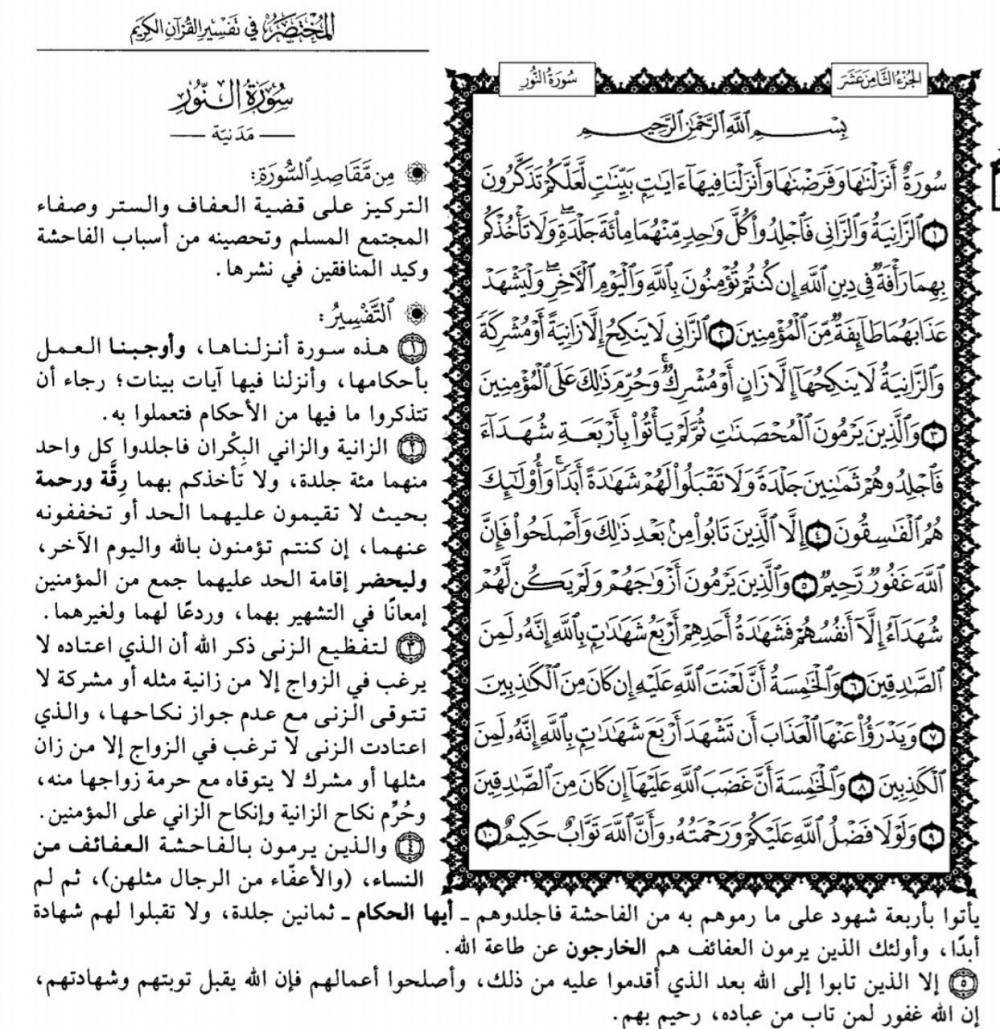 المختصر في تفسير القرآن الكريم
الجزء الثامن عشر
سورة النور
بِسْمِ ٱللَّهِ ٱلرَّحْمَٰنِ ٱلرَّحِيمِ
سُورَةٌ أَنزَلْنَٰهَا وَفَرَضْنَٰهَا وَأَنزَلْنَا فِيهَآ ءَايَٰتٍۭ بَيِّنَٰتٍ لَّعَلَّكُمْ تَذَكَّرُونَ
١ ٱلزَّانِيَةُ وَٱلزَّانِى فَٱجْلِدُوا۟ كُلَّ وَٰحِدٍ مِّنْهُمَا مِا۟ئَةَ جَلْدَةٍ وَلَا تَأْخُذْكُم
بِهِمَا رَأْفَةٌ فِى دِينِ ٱللَّهِ إِن كُنتُمْ تُؤْمِنُونَ بِٱللَّهِ وَٱلْيَوْمِ ٱلْءَاخِرِ وَلْيَشْهَدْ
عَذَابَهُمَا طَآئِفَةٌ مِّنَ ٱلْمُؤْمِنِينَ ٢ ٱلزَّانِى لَا يَنكِحُ إِلَّا زَانِيَةً أَوْ مُشْرِكَةً
وَٱلزَّانِيَةُ لَا يَنكِحُهَآ إِلَّا زَانٍ أَوْ مُشْرِكٌ وَحُرِّمَ ذَٰلِكَ عَلَى ٱلْمُؤْمِنِينَ
٣ وَٱلَّذِينَ يَرْمُونَ ٱلْمُحْصَنَٰتِ ثُمَّ لَمْ يَأْتُوا۟ بِأَرْبَعَةِ شُهَدَآءَ
فَٱجْلِدُوهُمْ ثَمَٰنِينَ جَلْدَةً وَلَا تَقْبَلُوا۟ لَهُمْ شَهَٰدَةً أَبَدًا وَأُو۟لَٰٓئِكَ
هُمُ ٱلْفَٰسِقُونَ ٤ إِلَّا ٱلَّذِينَ تَابُوا۟ مِنۢ بَعْدِ ذَٰلِكَ وَأَصْلَحُوا۟ فَإِنَّ
ٱللَّهَ غَفُورٌ رَّحِيمٌ ٥ وَٱلَّذِينَ يَرْمُونَ أَزْوَٰجَهُمْ وَلَمْ يَكُن لَّهُمْ
شُهَدَآءُ إِلَّآ أَنفُسُهُمْ فَشَهَٰدَةُ أَحَدِهِمْ أَرْبَعُ شَهَٰدَٰتٍۭ بِٱللَّهِ إِنَّهُۥ لَمِنَ
ٱلصَّٰدِقِينَ ٦ وَٱلْخَٰمِسَةُ أَنَّ لَعْنَتَ ٱللَّهِ عَلَيْهِ إِن كَانَ مِنَ ٱلْكَٰذِبِينَ
٧ وَيَدْرَؤُا۟ عَنْهَا ٱلْعَذَابَ أَن تَشْهَدَ أَرْبَعَ شَهَٰدَٰتٍۭ بِٱللَّهِ إِنَّهُۥ لَمِنَ
ٱلْكَٰذِبِينَ ٨ وَٱلْخَٰمِسَةَ أَنَّ غَضَبَ ٱللَّهِ عَلَيْهَآ إِن كَانَ مِنَ ٱلصَّٰدِقِينَ
٩ وَلَوْلَا فَضْلُ ٱللَّهِ عَلَيْكُمْ وَرَحْمَتُهُۥ وَأَنَّ ٱللَّهَ تَوَّابٌ حَكِيمٌ ١٠
سورة النور
— مدنية —
من مقاصد السورة:
التركيز على قضية العفاف والستر وصفاء
المجتمع المسلم وتحصينه من أسباب الفاحشة
وكيد المنافقين في نشرها.
التفسير:
١ هذه سورة أنزلناها، وأوجبنا العمل
بأحكامها، وأنزلنا فيها آيات بينات؛ رجاء أن
تتذكروا ما فيها من الأحكام فتعملوا به.
٢ الزانية والزاني البِكْران فاجلدوا كل واحد
منهما مئة جلدة، ولا تأخذكم بهما رِقَّة ورحمة
بحيث لا تقيمون عليهما الحد أو تخففونه
عنهما، إن كنتم تؤمنون بالله واليوم الآخر،
وليحضر إقامة الحد عليهما جمع من المؤمنين
إمعانًا في التشهير بهما، وردعًا لهما ولغيرهما.
٣ لتفظيع الزنى ذكر الله أن الذي اعتاده لا
يرغب في الزواج إلا من زانية مثله أو مشركة لا
تتوقى الزنى مع عدم جواز نكاحها، والذي
اعتادت الزنى لا ترغب في الزواج إلا من زان
مثلها أو مشرك لا يتوقاه مع حرمة زواجها منه،
وحُرِّم نكاح الزانية وإنكاح الزاني على المؤمنين.
٤ والذين يرمون بالفاحشة العفائف من
النساء، (والأعفّاء من الرجال مثلهن)، ثم لم
يأتوا بأربعة شهود على ما رموهم به من الفاحشة فاجلدوهم ـ أيها الحكام ـ ثمانين جلدة، ولا تقبلوا لهم شهادة
أبدًا، وأولئك الذين يرمون العفائف هم الخارجون عن طاعة الله.
٥ إلا الذين تابوا إلى الله بعد الذي أقدموا عليه من ذلك، وأصلحوا أعمالهم فإن الله يقبل توبتهم وشهادتهم،
إن الله غفور لمن تاب من عباده، رحيم بهم.